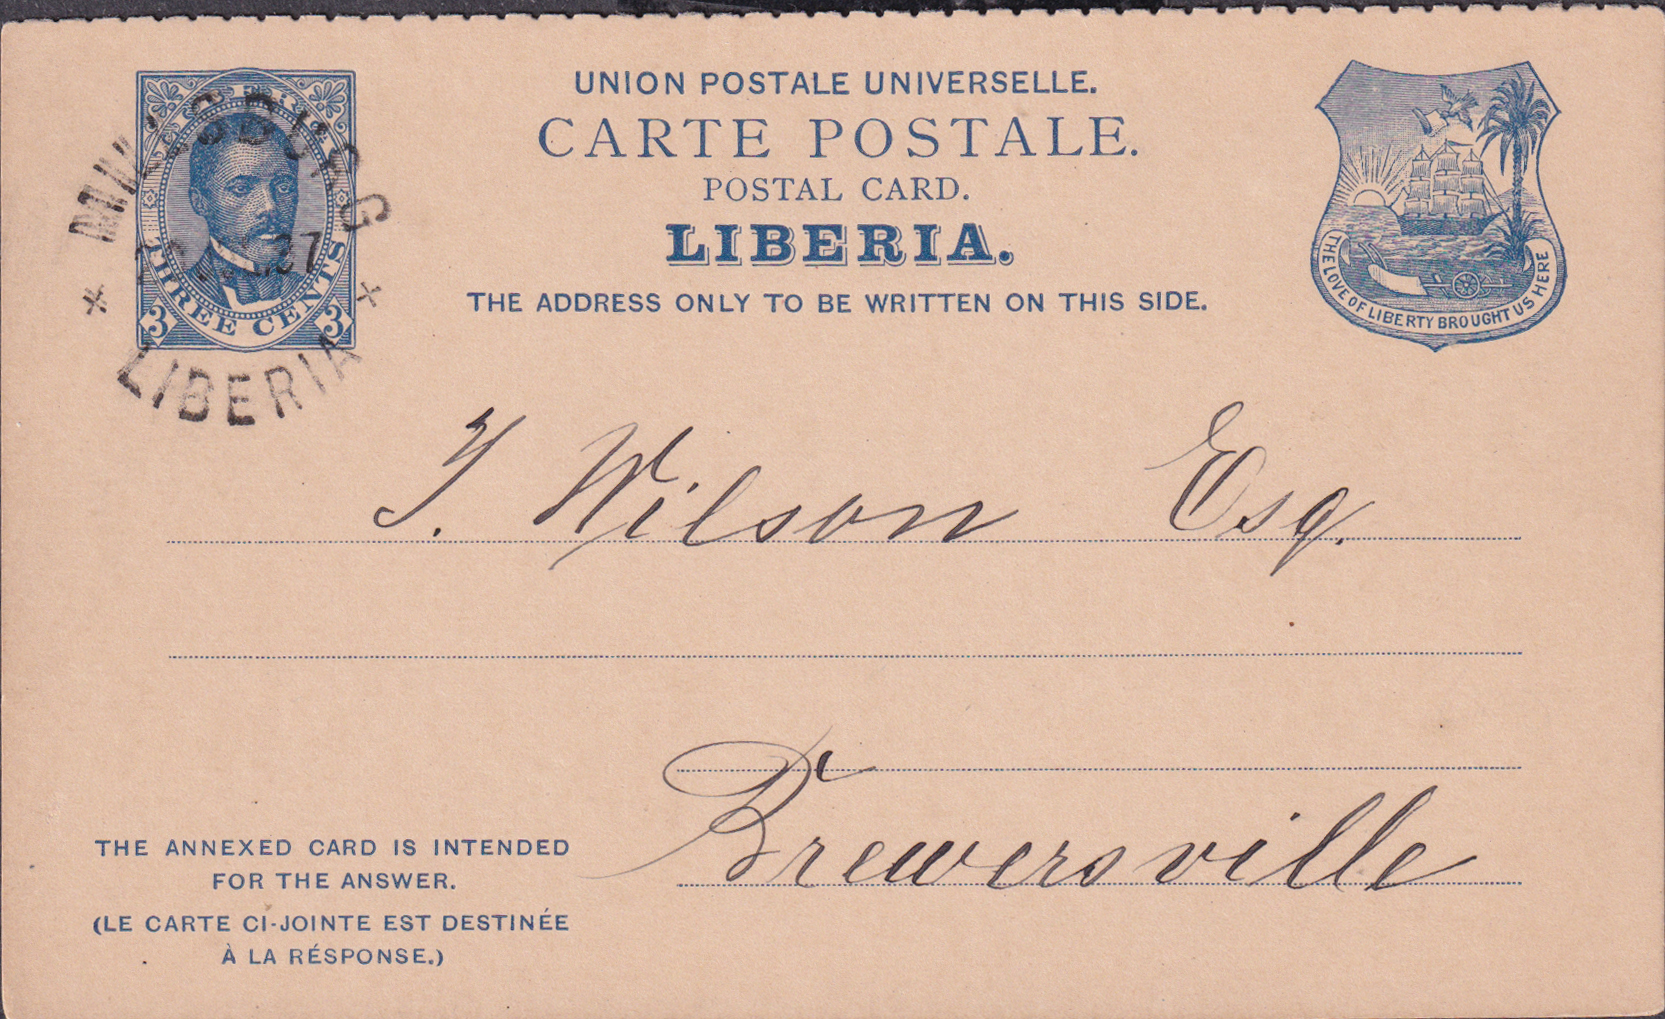 UNION POSTALE UNIVERSELLE.
CARTE POSTALE.
POSTAL CARD.
LIBERIA.
THE ADDRESS ONLY TO BE WRITTEN ON THIS SIDE.
THREE CENTS
3 3
MILLSBURG
LIBERIA
THE LOVE OF LIBERTY BROUGHT US HERE
Wilson Esq.
Brewersville
THE ANNEXED CARD IS INTENDED
FOR THE ANSWER.
(LE CARTE CI-JOINTE EST DESTINÉE
À LA RÉSPONSE.)